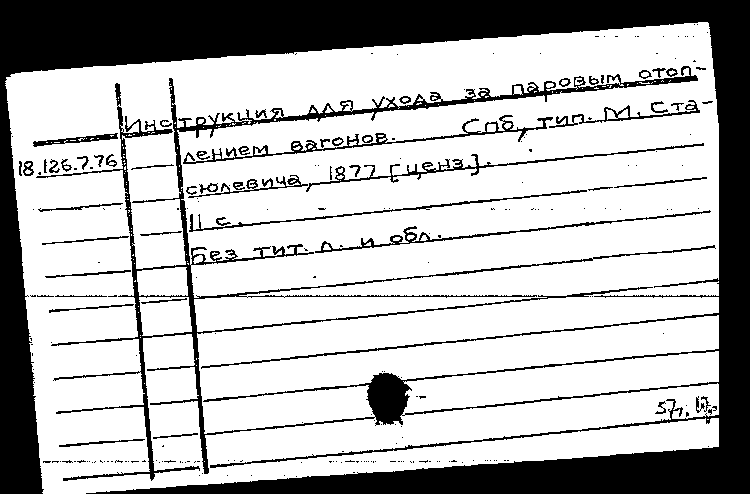 Инструкция для ухода за паровым отоп-
18.126.7.76 лением вагонов. Спб, тип. М. Ста-
сюлевича, 1877 [ценз].
11 с.
Без тит. л. и обл.